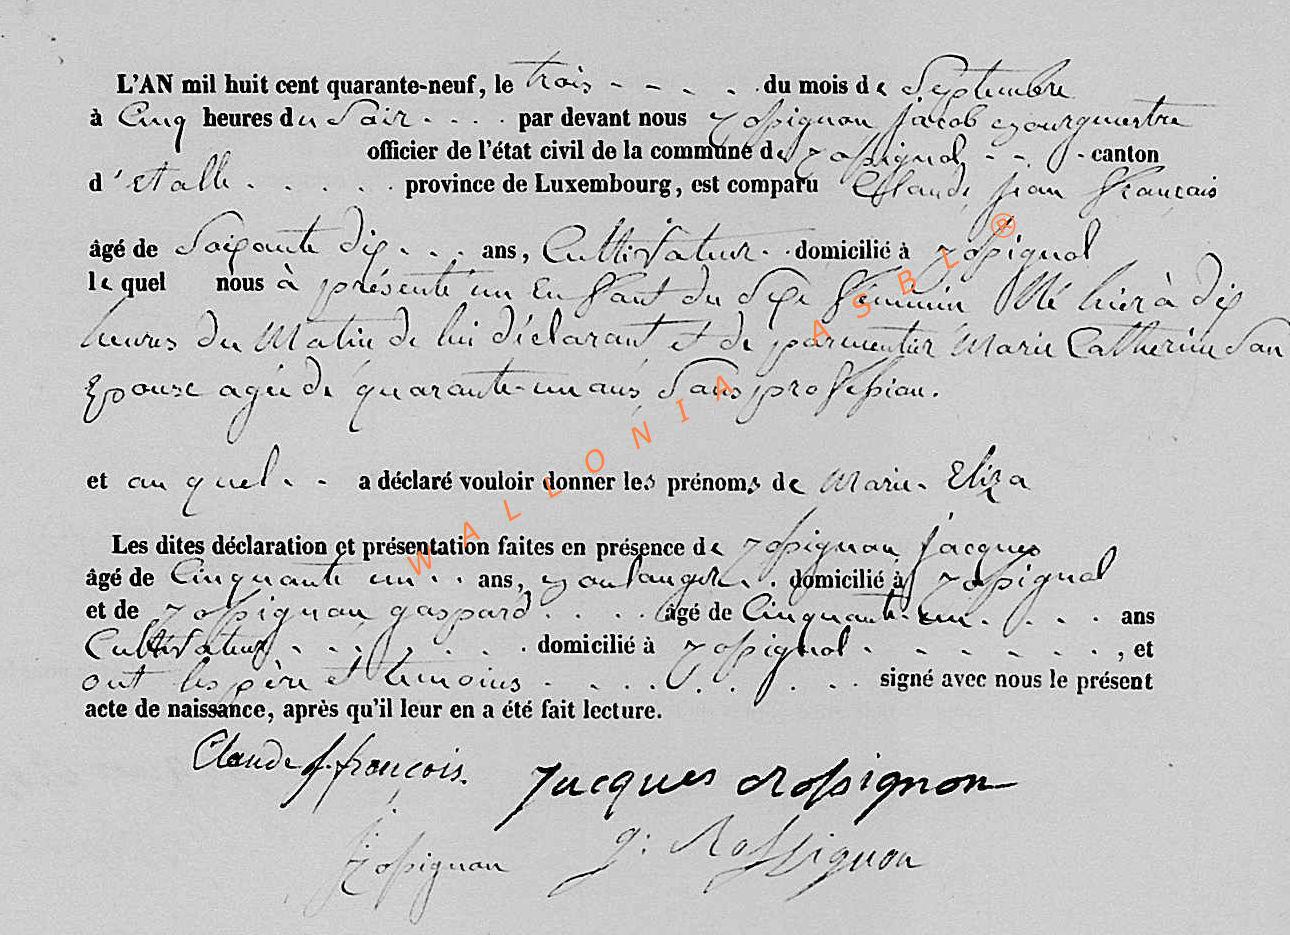 L'AN mil huit cent quarante-neuf, le trois - - - - . du mois de Septembre
à Cinq heures du Soir - . . . par devant nous Rossignon jacob Bourgmestre
officier de l'état civil de la commune de Rossignol - - . - canton
d'Etalle . . . . . . province de Luxembourg, est comparu Claude jean françois
âgé de Soixante dix - - - ans, Cultivateur - . domicilié à Rossignol
le quel nous à présenté un Enfant du Sexe féminin Né hier à dix
heures du Matin de lui déclarant et de parmentier Marie Catherine Son
Epouse agée de quarante-un ans, Sans profession.
et au quel - - a déclaré vouloir donner les prénoms de Marie - Eliza
Les dites déclaration et présentation faites en présence de Rossignon jacques
âgé de Cinquante un - . ans, Boulanger - . domicilié à Rossignol
et de Rossignon gaspard . . . . âgé de Cinquante-un . . . . ans
Cultivateur - - . . - . . . domicilié à Rossignol - . - - - . . , et
ont les père et témoins - . . . . . . - . . signé avec nous le présent
acte de naissance, après qu'il leur en a été fait lecture.
Claude j. françois. Jacques Rossignon
Rossignon g: Rossignon
WALLONIA ASBL ®